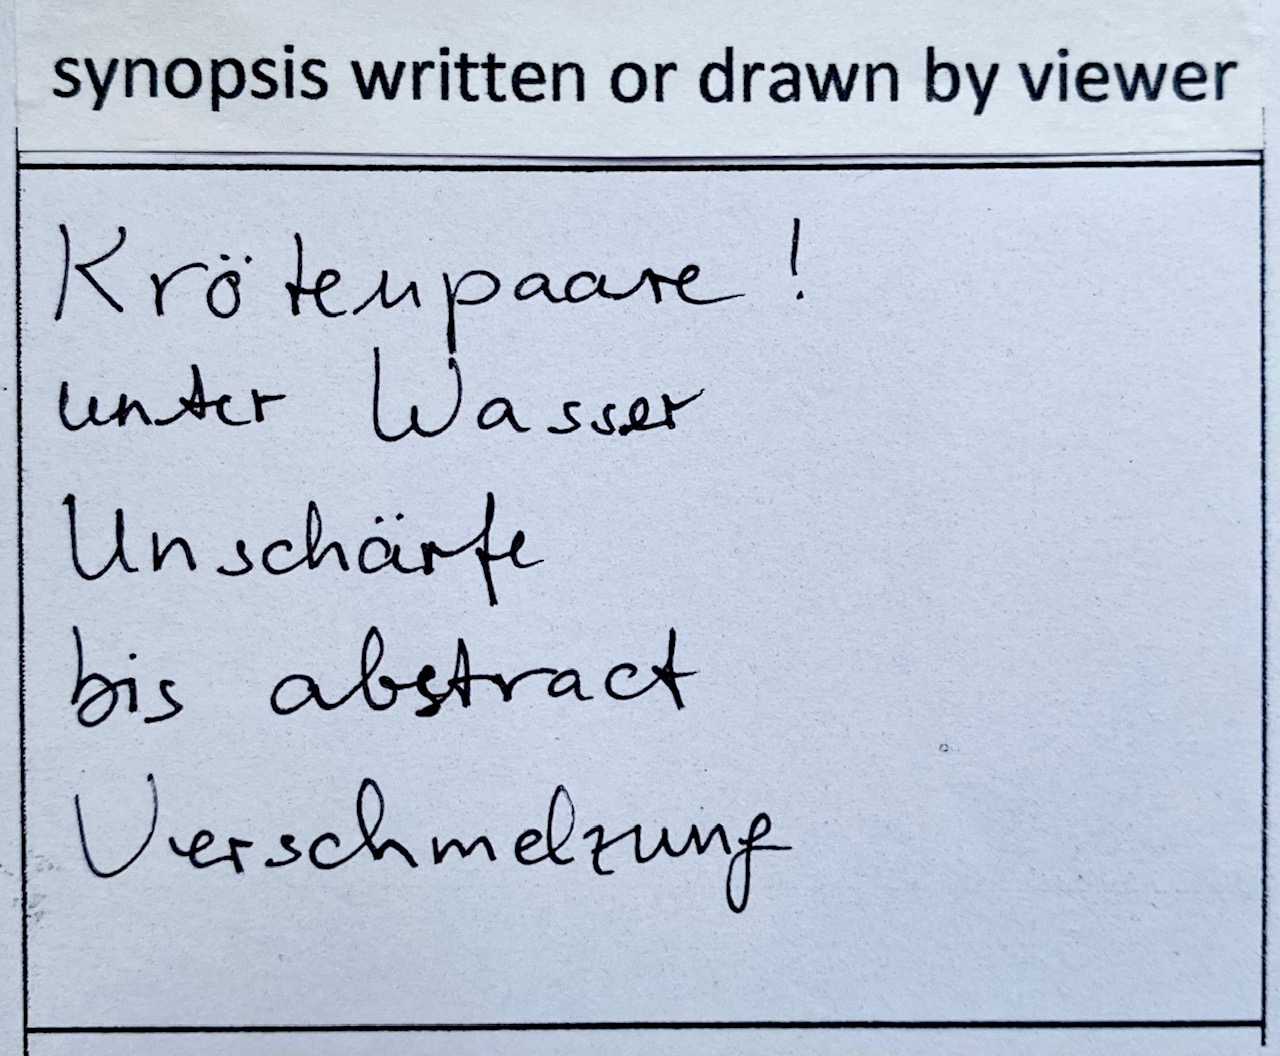 synopsis written or drawn by viewer
Krötenpaare !
unter Wasser
Unschärfe
bis abstract
Verschmelzung